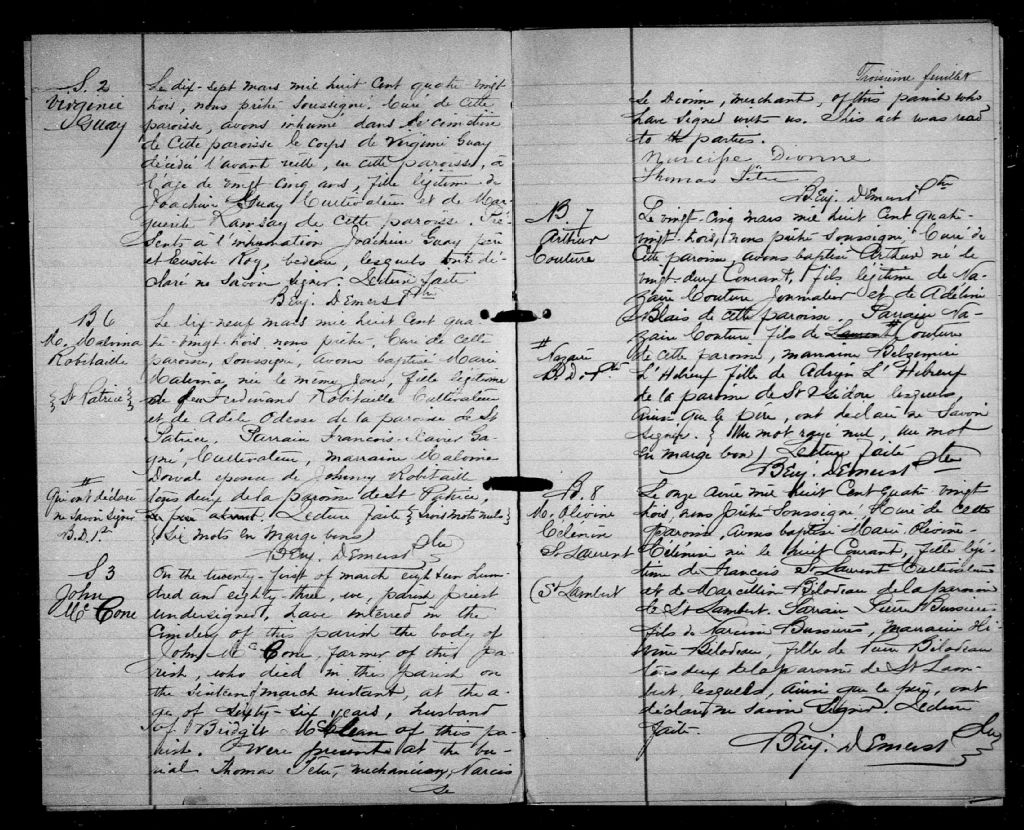 S. 2
Virginie
Guay
Le dix-sept mars mil huit cent quatre vingt
trois, nous prêtre soussigné, Curé de Cette
paroisse, avons inhumé dans le cimetière
de Cette paroisse le corps de Virginie Guay
décédée l'avant veille, en cette paroisse, à
l'âge de vingt cinq ans, fille légitime de
Joachim Guay Cultivateur et de Mar-
guerite Ramsay de Cette paroisse. Pré-
sents à l'inhumation Joachim Guay père
et Eusèbe Roy, bedeau, lesquels ont dé-
claré ne savoir signer. Lecture faite
Benj. Demers Ptre
B 6
M. Malvina
Robitaille
{ St Patrice }
Le dix-neuf mars mil huit Cent qua-
tre-vingt-trois, nous prêtre, Curé de cette
paroisse, soussigné, avons baptisé Marie
Malvina, née le même jour, fille légitime
de feu Ferdinand Robitaille Cultivateur
et de Adèle de la paroisse de St
Patrice. Parrain François-Xavier Ga-
gné, Cultivateur, marraine Malvina
Dorval épouse de Johnny Robitaille
tous deux de la paroisse de St Patrice.
#
Qui ont déclaré
ne savoir signer
B.D. Ptre
Le père absent. Lecture faite { trois mots nuls }
{ Six mots en marge bons }
Benj. Demers Ptre
S 3
John
Mc Cone
On the twenty-first of march eighteen hun-
dred and eighty-three, we, parish priest
undersigned, have interred in the
Cimetery of this parish the body of
John Mc Cone, farmer of this pa-
rish, who died in this parish on
the sixteen march instant, at the a-
ge of sixty-six years, husband
of Bridgit McClean of this pa-
rish. Were present at the bu-
rial Thomas Tétu, mechanician, Narcis
se
Troisième feuillet
se Dionne, merchant, of this parish who
have signed with us. This act was read
to th parties.
Narcisse Dionne
Thomas Tétu
Benj. Demers Ptre
B. 7
Arthur
Couture
Le vingt-cinq mars mil huit Cent quatre-
vingt-trois, nous prêtre soussigné Curé de
Cette paroisse, avons baptisé Arthur né le
vingt-deux Courant, fils légitime de Na-
zaire Couture Journalier et de Adeline
Blais de cette paroisse. Parrain Na-
zaire Couture fils de Laurent # Couture
#
Nazaire
B.D. Ptre
de cette paroisse, marraine
L'Hébreux fille de L'Hébreux
de la paroisse de St Isidore lesquels,
ainsi que le père, ont déclaré ne savoir
signer. { Un mot rayé nul. Un mot
en marge bon } Lecture faite
Benj. Demers Ptre
B. 8
M. Olivine
Célénire
St Laurent
(St Lambert
Le onze Avril mil huit Cent quatre vingt
trois, nous Prêtre Soussigné Curé de Cette
paroisse, avons baptisé Marie Olivine
Célénire née le huit Courant, fille légi-
time de Francois St Laurent Cultivateur
et de Marcelline Bilodeau de la paroisse
de St Lambert. Parrain Pierre Bussières
fils de Narcisse Bussières, marraine Hé-
Bilodeau, fille de Pierre Bilodeau
tous deux de la paroisse de St Lam-
bert, lesquels, ainsi que le père, ont
déclaré ne savoir signer. Lecture
faite.
Benj. Demers Ptre